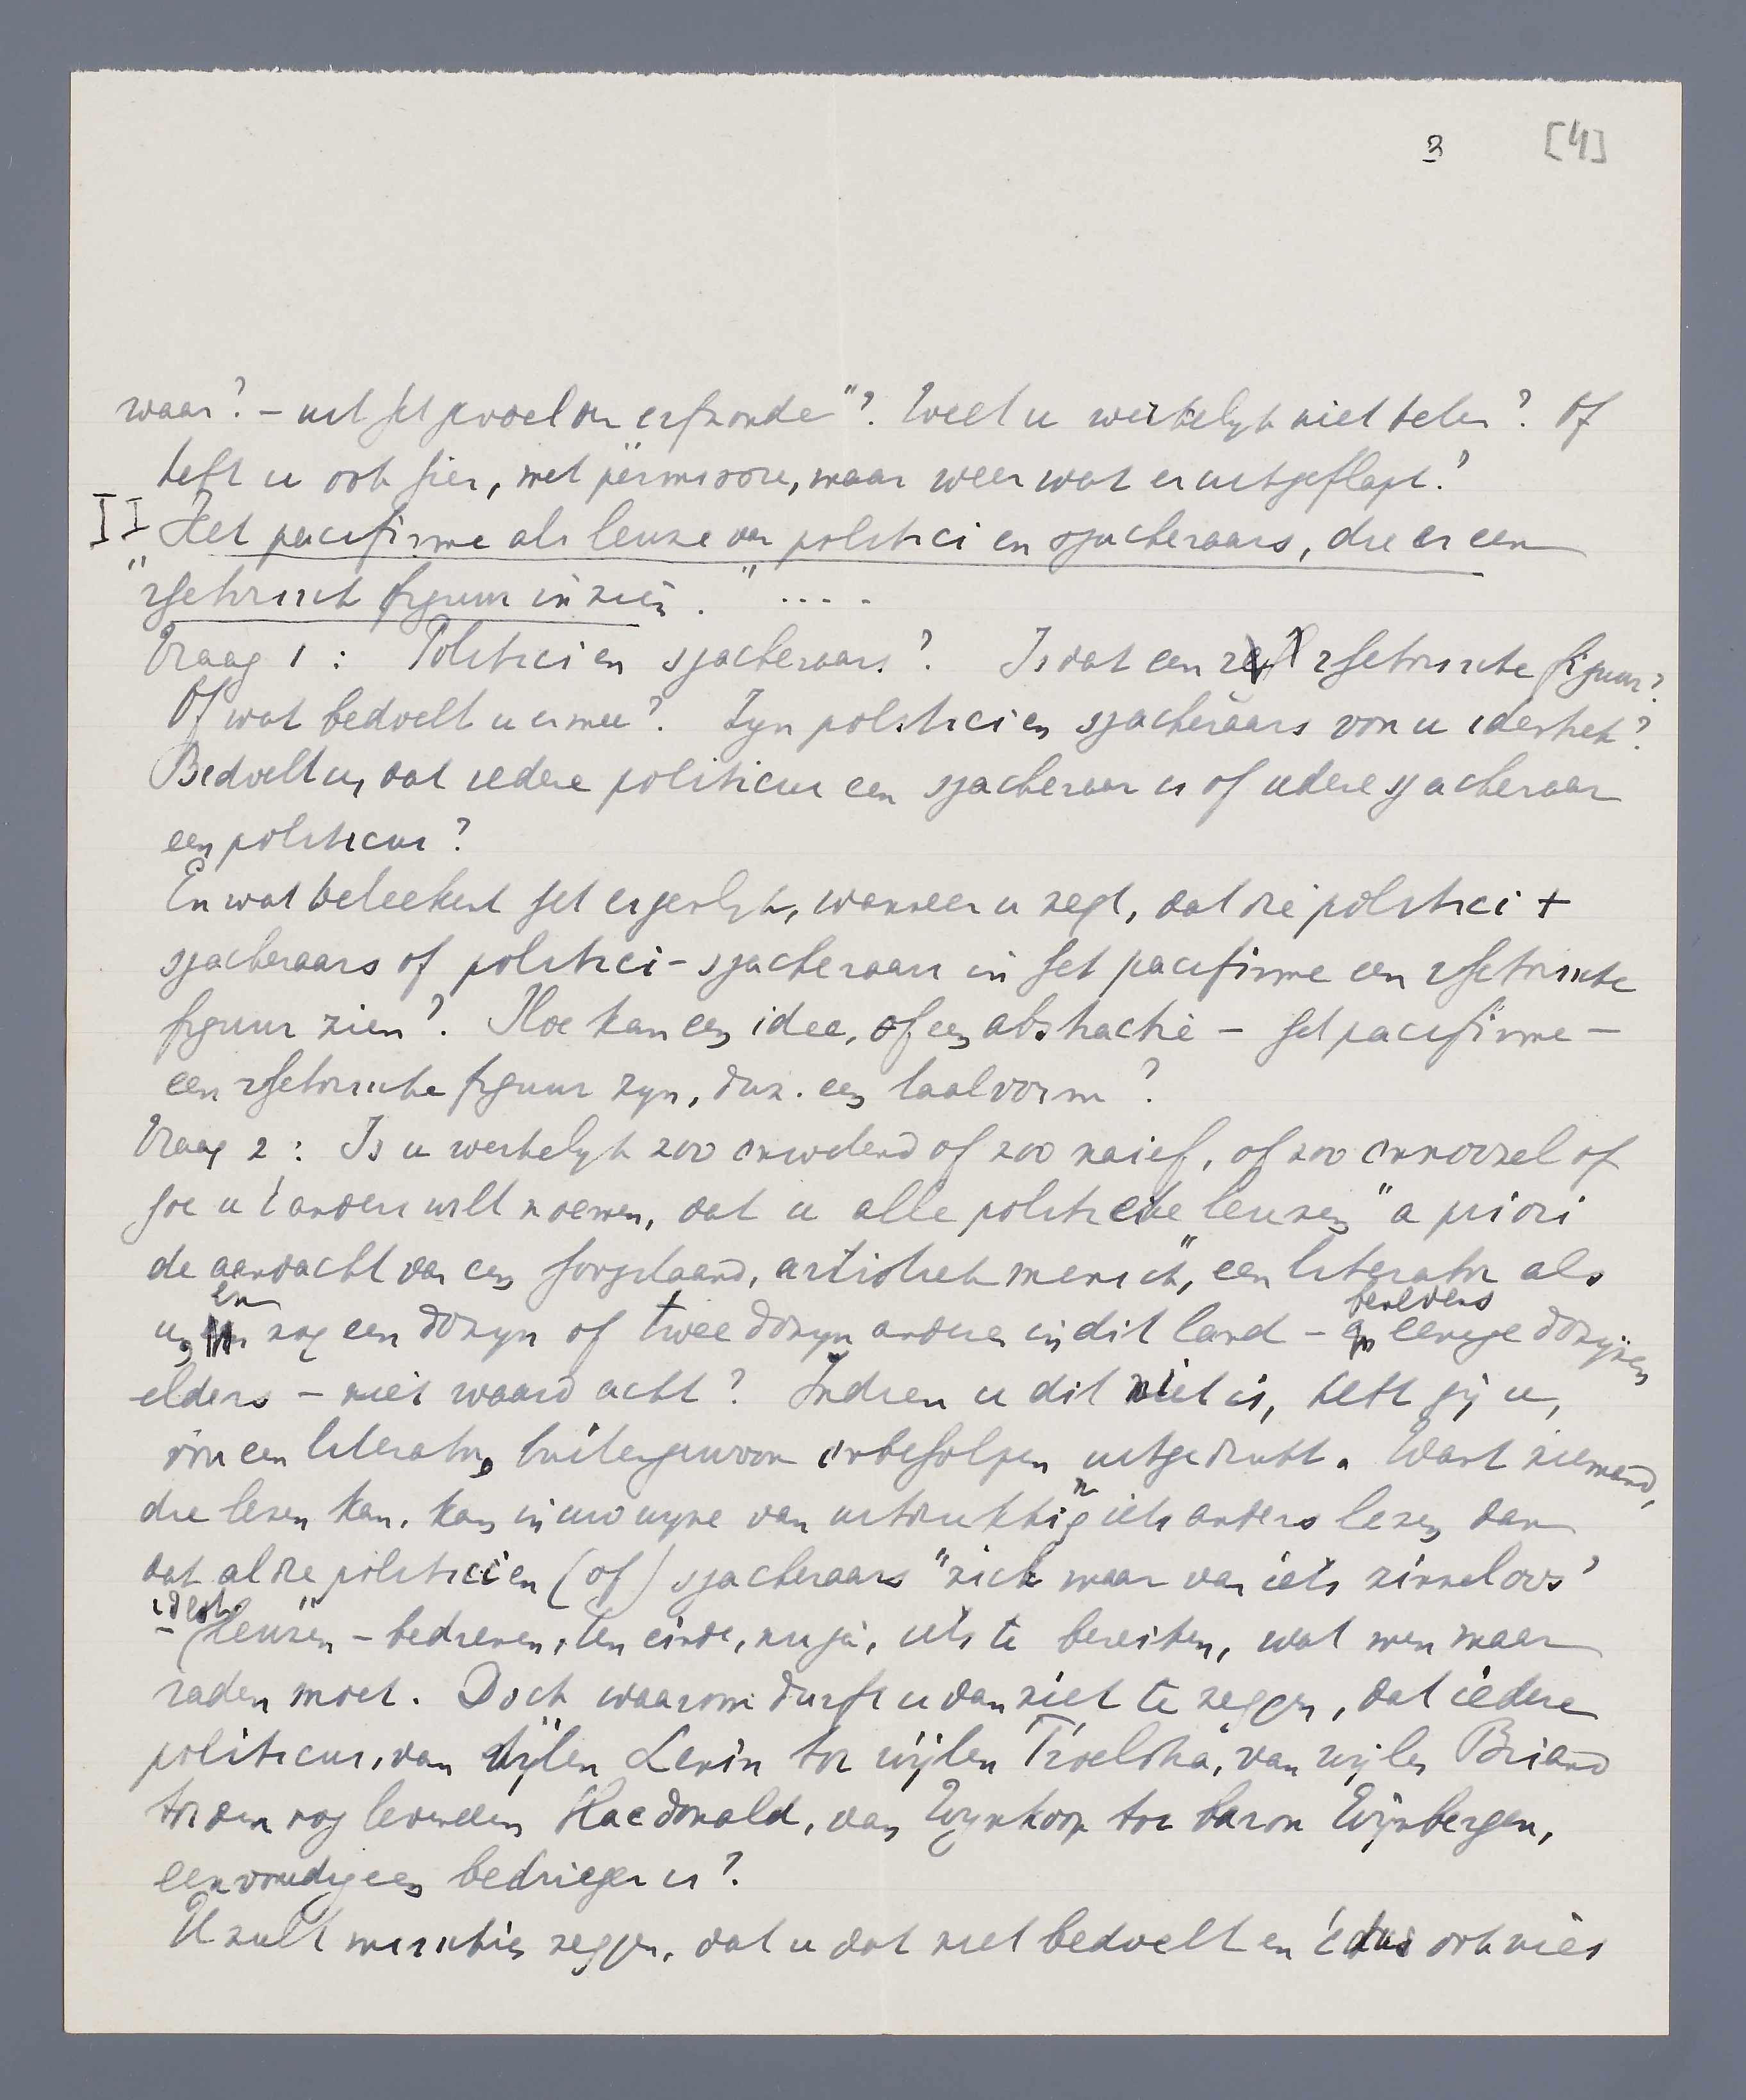 3 [4]
waar? – uit het gevoel der erfzonde"? Weet u werkelyk niet beter? Of
hebt u ook hier, met permissie, maar weer wat er uitgeflapt?
II Het pacifisme als leuze van politici en sjacheraars, die er een
"rhetorisch figuur in zien." ....
Vraag 1: Politici en sjacheraars? Is dat een rhetorische figuur?
Of wat bedoelt u ermee? Zyn politici en sjacheraars voor u identiek?
Bedoelt u, dat iedere politicus een sjacheraar is of iedere sjacheraar
een politicus?
En wat beteekent het eigenlyk, wanneer u zegt, dat die politici +
sjacheraars of politici-sjacheraars in het pacifisme een rhetorische
figuur zien? Hoe kan een idee, of een abstractie – het pacifisme –
een rhetorische figuur zyn, d.w.z. een taalvorm?
Vraag 2: Is u werkelyk zoo onwetend of zoo naief, of zoo onnoozel of
hoe u 't anders wilt noemen, dat u alle politieke leuzen "a priori
de aandacht van een hoogstaand, artistiek mensch", een literator als
u, en nog een dozyn of twee dozyn andere in dit land – benevens eenige dozijnen
elders – niet waard acht? Indien u dit niet is, hebt gij u,
voor een literator, buitengewoon onbeholpen uitgedrukt. Want niemand,
die lezen kan, kan in uw wyze van uitdrukking iets anders lezen dan
dat al die politici en (of) sjacheraars "zich maar van iets zinneloos"
– leuzen – bedienen, ten einde, nu ja, iets te bereiken, wat men maar
raden moet. Doch waarom durft u dan niet te zeggen, dat iedere
politicus, van wijlen Lenin tot wijlen Troelstra, van wijlen Briand
tot den nog levenden MacDonald, van Wynkoop tot baron Wijnbergen,
eenvoudig een bedrieger is?
U zult misschien zeggen, dat u dat niet bedoelt en 't dus ook niet